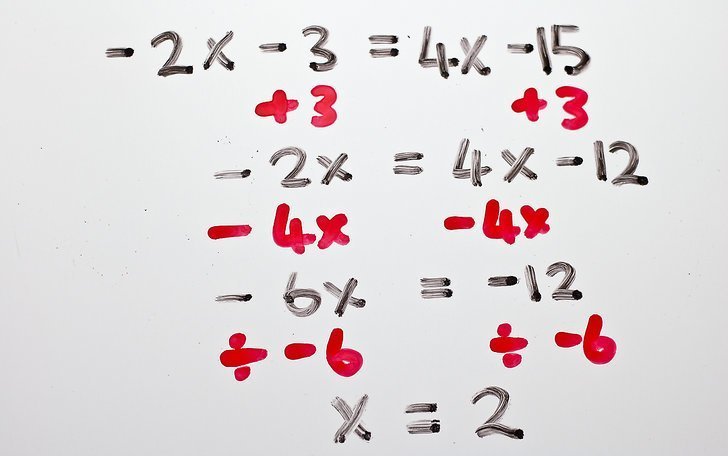 -2x - 3 = 4x - 15
+3 +3
-2x = 4x - 12
-4x -4x
-6x = -12
÷ -6 ÷ -6
x = 2